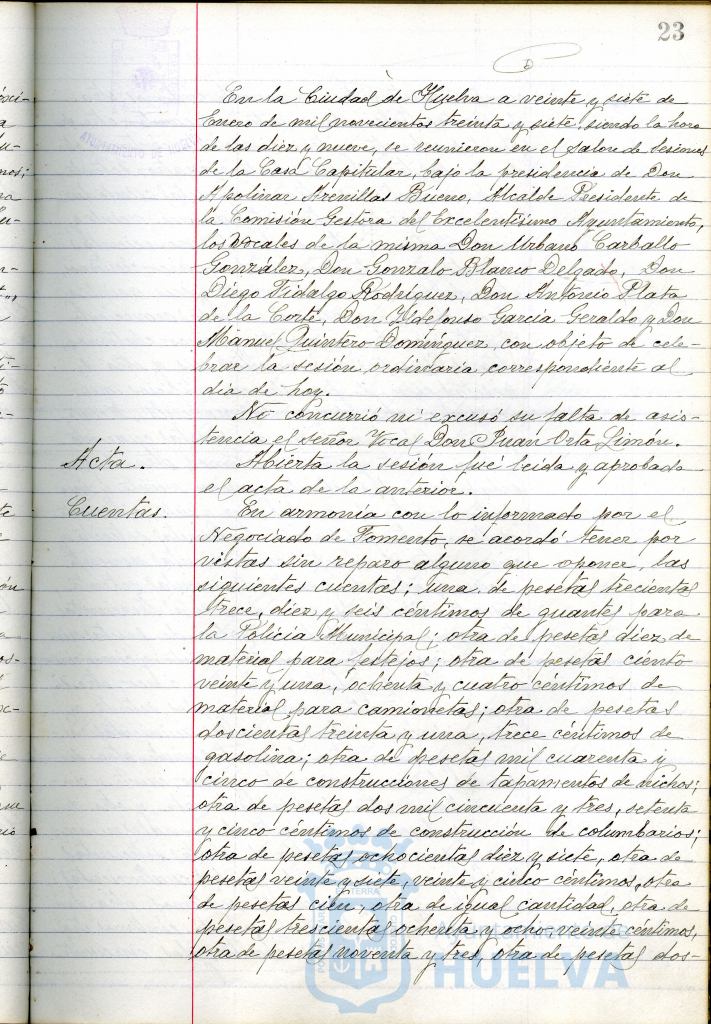 23
En la Ciudad de Huelva a veinte y siete de
Enero de mil novecientos treinta y siete, siendo la hora
de las diez y nueve, se reunieron en el Salon de Sesiones
de la Casa Capitular, bajo la presidencia de Don
Apolinar Arenillas Bueno, Alcalde Presidente de
la Comisión Gestora del Excelentísimo Ayuntamiento,
los Vocales de la misma Don Urbano Carballo
González, Don Gonzalo Blanco Delgado, Don
Diego Fidalgo Rodríguez, Don Antonio Plata
de la Corte, Don Yldefonso García Geraldo y Don
Manuel Quintero Domínguez, con objeto de cele-
brar la sesión ordinaria correspondiente al
dia de hoy.
No concurrió ni excusó su falta de asis-
tencia el señor Vocal Don Juan Orta Limón.
Acta.
Abierta la sesión fué leida y aprobada
el acta de la anterior.
Cuentas.
En armonía con lo informado por el
Negociado de Fomento, se acordó tener por
vistas sin reparo alguno que oponer, las
siguientes cuentas; una de pesetas trecientas
trece, diez y seis céntimos de guantes para
la Policia Municipal; otra de pesetas diez de
material para festejos; otra de pesetas ciento
veinte y una, ochenta y cuatro céntimos de
material para camionetas; otra de pesetas
doscientas treinta y una, trece céntimos de
gasolina; otra de pesetas mil cuarenta y
cinco de construcciones de tapamentos de nichos;
otra de pesetas dos mil cincuenta y tres, setenta
y cinco céntimos de construcción de columbarios;
otra de pesetas ochocientas diez y siete, otra de
pesetas veinte y siete, veinte y cinco céntimos, otra
de pesetas cien, otra de igual cantidad, otra de
pesetas trescientas ochenta y ocho, veinte céntimos,
otra de pesetas noventa y tres, otra de pesetas dos-
HUELVA